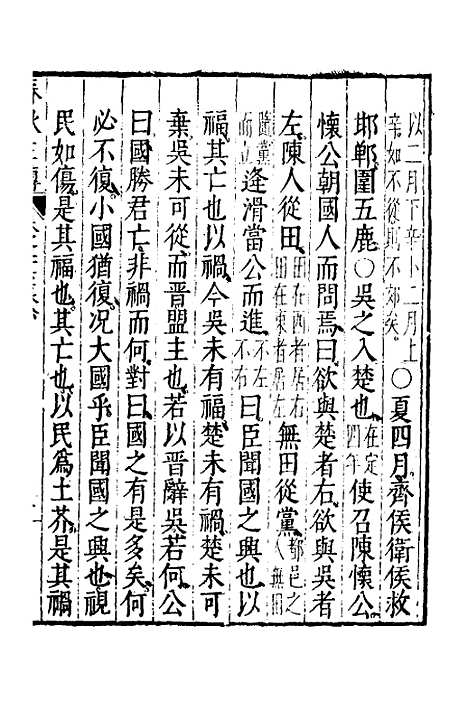 以二月下辛卜二月上辛如不從則不郊矣○夏四月齊侯衛侯救
邯鄲圍五鹿○吳之入楚也在定四年使召陳懷公
懷公朝國人而問焉曰欲與楚者右欲與吳者
左陳人從田田在西者居右田在東者居左無田從黨都邑之人無田
隨黨而立逢滑當公而進不左不右曰臣聞國之興也以
福其亡也以禍今吳未有福楚未有禍楚未可
棄吳未可從而晉盟主也若以晉辭吳若何公
曰國勝君亡非禍而何對曰國之有是多矣何
必不復小國猶復况大國乎臣聞國之興也視
民如傷是其福也其亡也以民爲土芥是其禍
春秋三傳